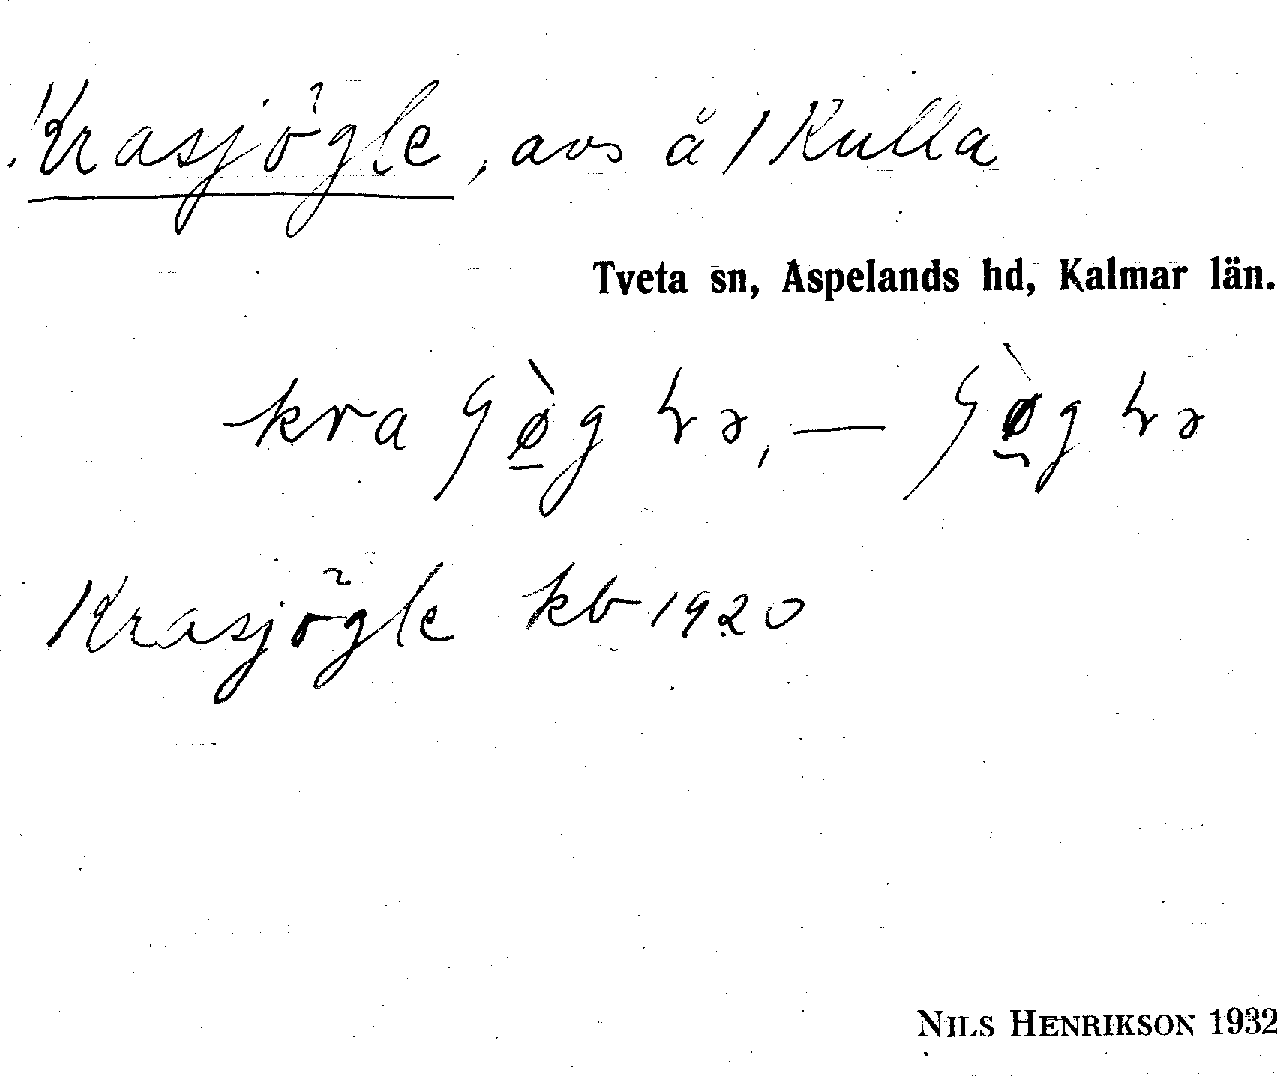 Krasjögle, avs å 1 Kulla
Tveta sn, Aspelands hd, Kalmar län.
Krasjögle kb 1920
NILS HENRIKSON 1932